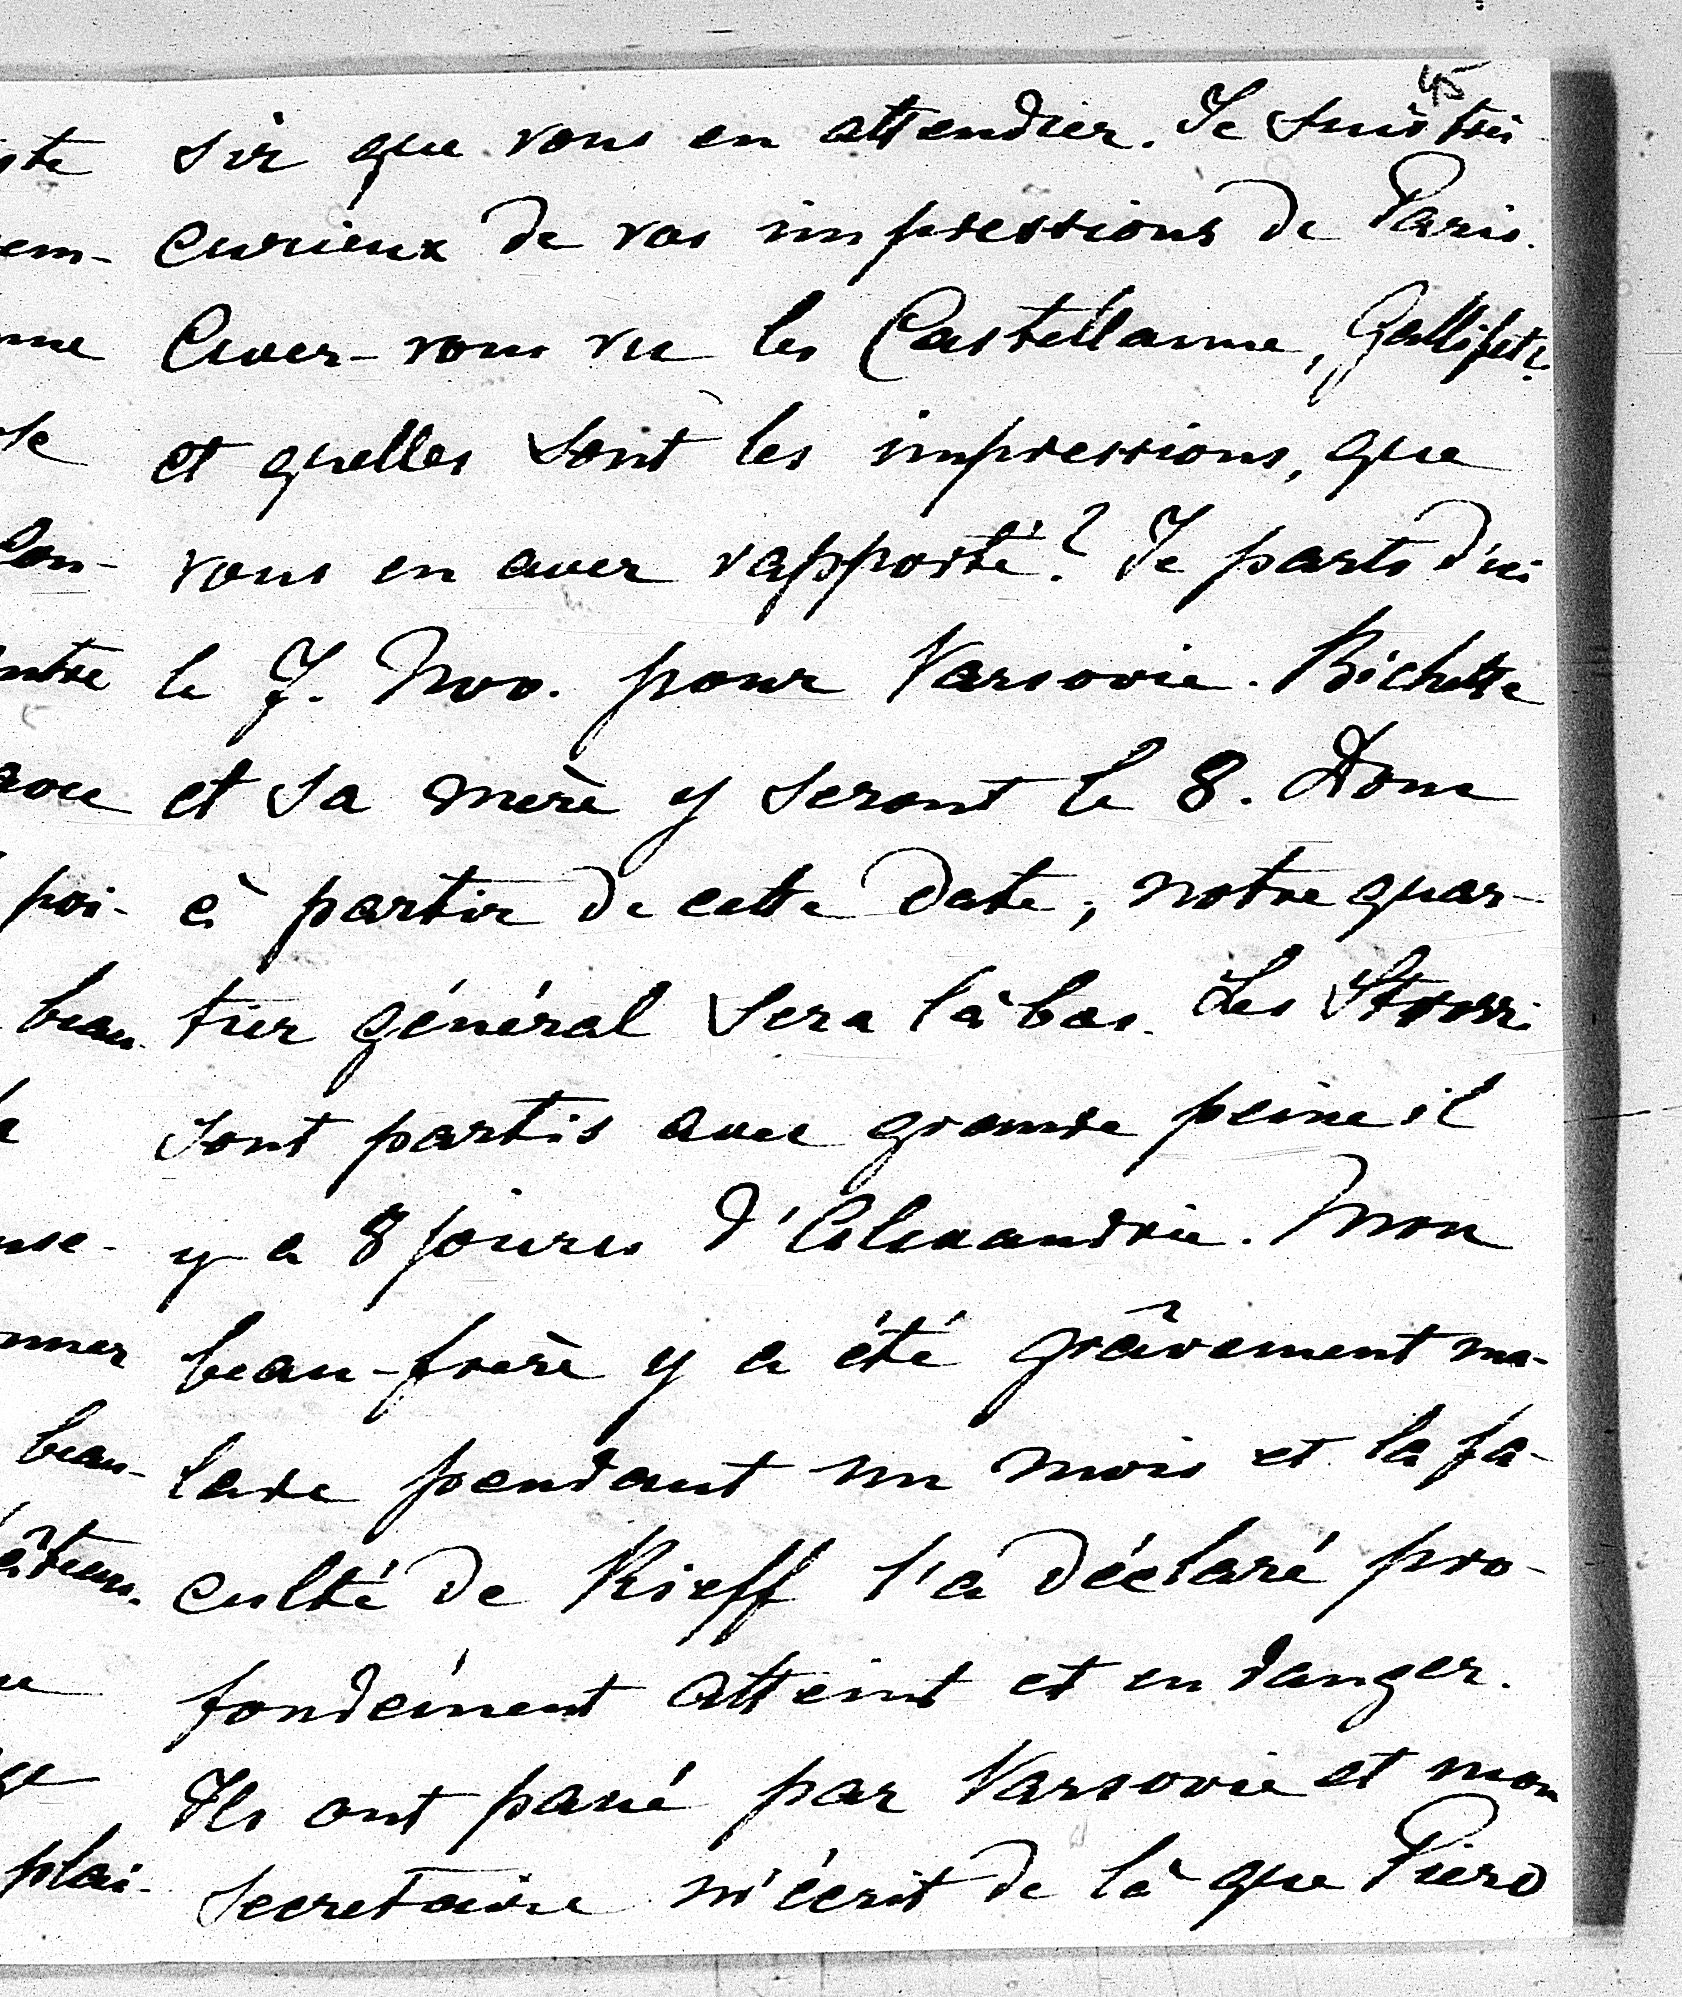 45
sir que vous en attendier. Je suis très
curieux de vos impressions de Paris.
Aver-vous vu les Castellanne, Gallifet
et quelles sont les impressions, que
vous en aver rapporté? Je parts d'ici
le 7. Nov. pour Varsovie. Bichette
et sa mère y seront le 8. Donc
à partir de cette date, notre quar-
tier général sera là bas. Les Strozzi
sont partis avec grande peine il
y a 8 jours d'Alexandrie. Mon
beau-frère y a été grâvement ma-
lade pendant un mois et la fa-
culté de Kieff l'a déclaré pro-
fondément atteint et en danger.
Ils ont passé par Varsovie et mon
secretaire m'écrit de là que Piero